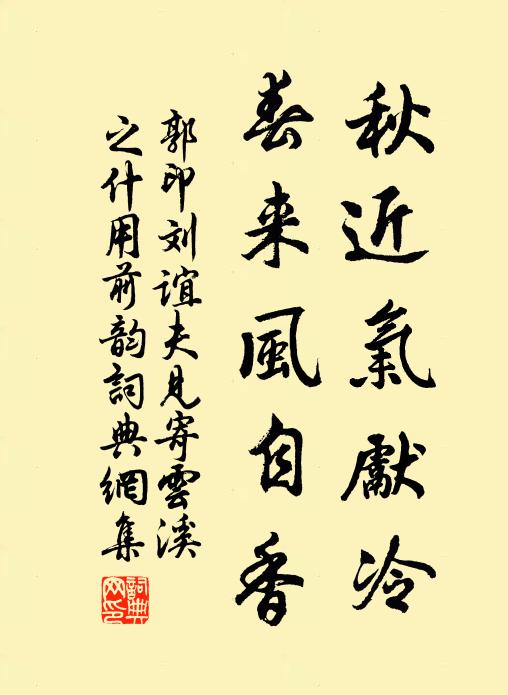 秋近氣獻冷
春来風自香
郭印刘誼夫見寄雲溪
之什用前韵詞典網集
詞典
网印